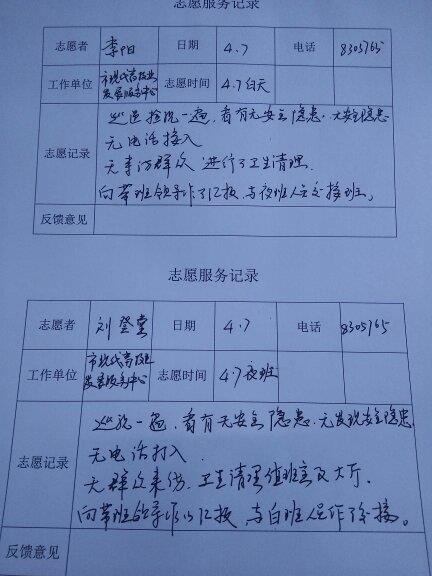 志愿服务记录
志愿者 李阳 日期 4.7 电话 8305765
工作单位 市现代畜牧业发展服务中心 志愿时间 4.7白天
志愿记录
巡逻检视一遍,看有无安全隐患.无安全隐患
无电话接入
无来访群众 进行了卫生清理.
向带班领导作了汇报,与夜班人员交接班。
反馈意见
志愿服务记录
志愿者 刘登 日期 4.7 电话 8305765
工作单位 市现代畜牧业发展服务中心 志愿时间 4.7夜班
志愿记录
巡视一遍,看有无安全隐患.无发现安全隐患
无电话打入.
无群众来访.卫生清理值班室及大厅.
向带班领导作以汇报 与白班人员作了交接。
反馈意见